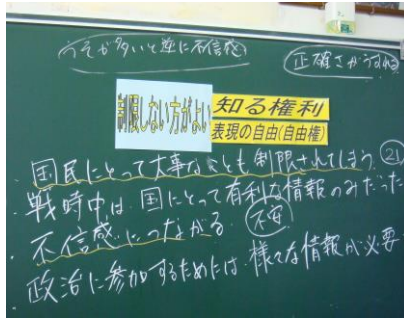 うそが多いと逆に不信感
正確さがうすれる
制限しない方がよい
知る権利
表現の自由(自由権)
国民にとって大事なことも制限されてしまう ㉑
・戦時中は、国にとって有利な情報のみだった
不信感につながる 不安
・政治に参加するためには、様々な情報が必要